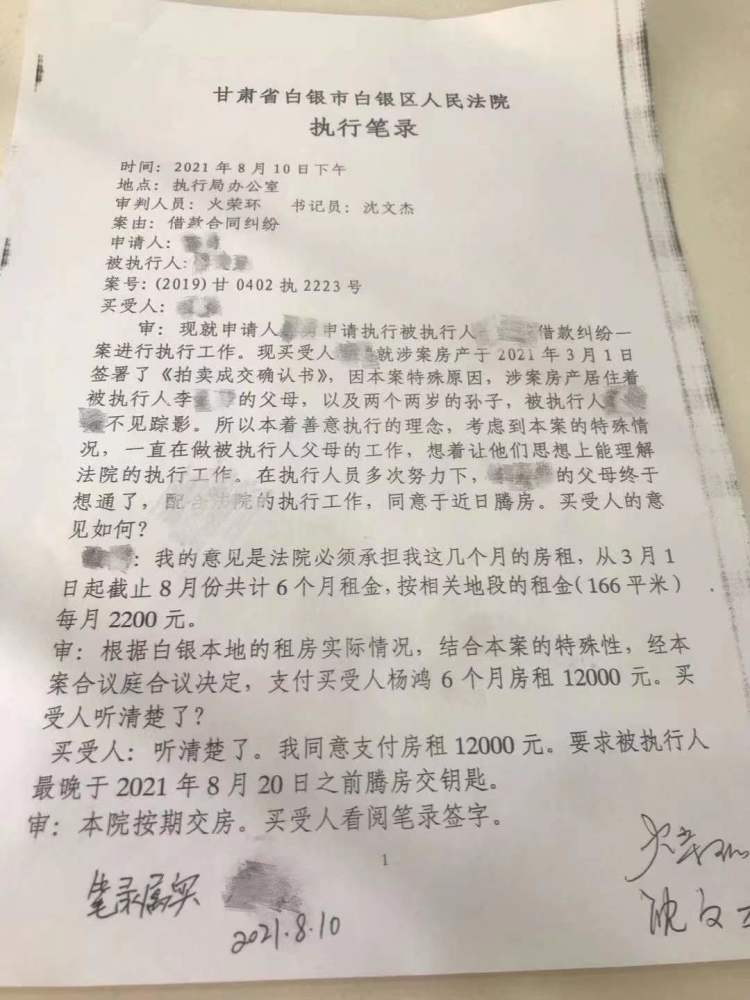 甘肃省白银市白银区人民法院
执行笔录
时间：2021年8月10日下午
地点：执行局办公室
审判人员：火荣环 书记员：沈文杰
案由：借款合同纠纷
申请人：
被执行人：
案号：(2019)甘0402执2223号
买受人：
审：现就申请人 申请执行被执行人 借款纠纷一
案进行执行工作。现买受人 就涉案房产于2021年3月1日
签署了《拍卖成交确认书》，因本案特殊原因，涉案房产居住着
被执行人李 的父母，以及两个两岁的孙子，被执行人
不见踪影。所以本着善意执行的理念，考虑到本案的特殊情
况，一直在做被执行人父母的工作，想着让他们思想上能理解
法院的执行工作。在执行人员多次努力下， 的父母终于
想通了，配合法院的执行工作，同意于近日腾房。买受人的意
见如何？
：我的意见是法院必须承担我这几个月的房租，从3月1
日起截止8月份共计6个月租金，按相关地段的租金（166平米）
每月2200元。
审：根据白银本地的租房实际情况，结合本案的特殊性，经本
案合议庭合议决定，支付买受人杨鸿6个月房租12000元。买
受人听清楚了？
买受人：听清楚了。我同意支付房租12000元。要求被执行人
最晚于2021年8月20日之前腾房交钥匙。
审：本院按期交房。买受人看阅笔录签字。
1
笔录属实
2021.8.10
沈文